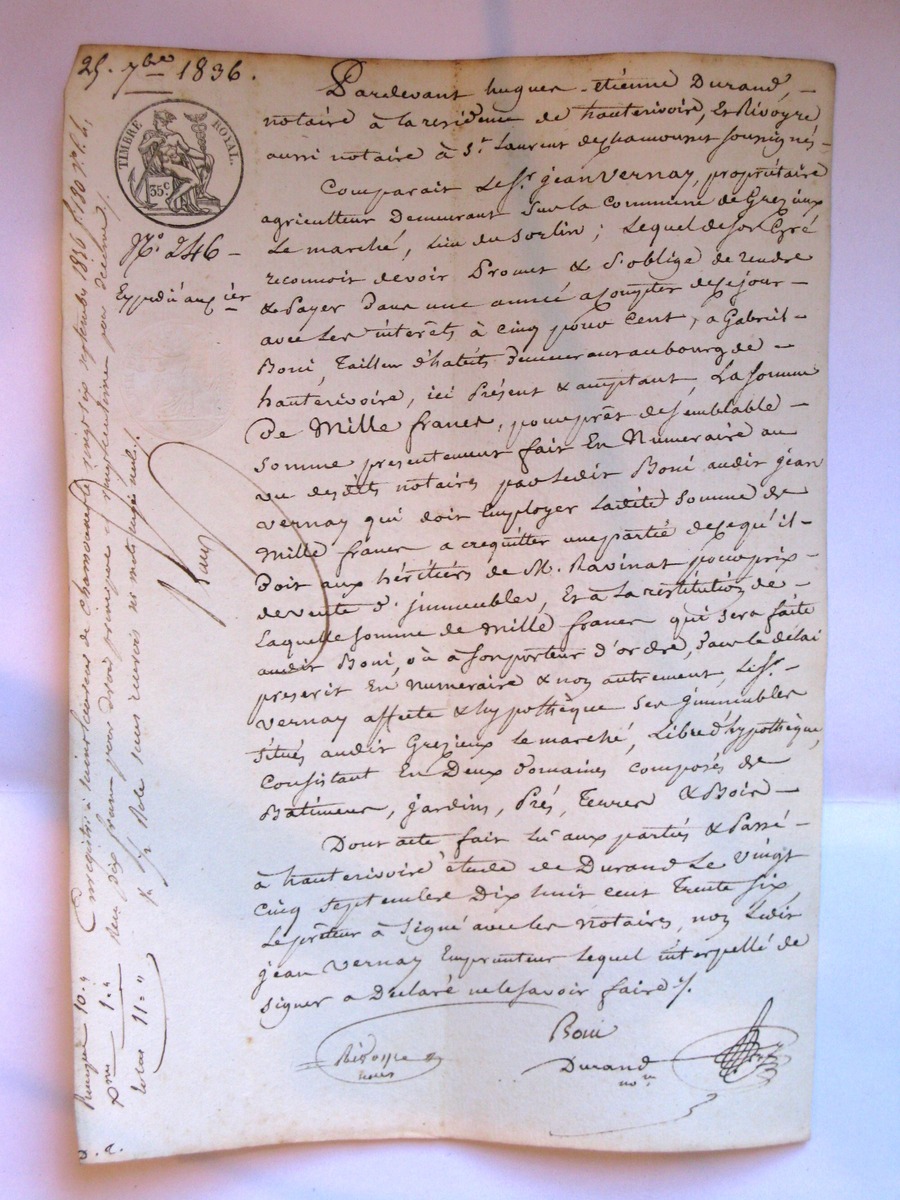 25. 7bre 1836.
TIMBRE ROYAL.
35c
N.o 246 –
Expédié aux ier
Pardevant hugues-étienne Durand, –
notaire à la residence de hauterivoire, Et Rivoyre
aussi notaire à St. Laurent de chamousset soussignés –
Comparait Le Sr. jean Vernay, propriétaire
agriculteur demeurant Sur la Commune de Grezieux
Le marché, Lieu du Sorlin; Lequel de Son Gré
reconnoit devoir Promet & S'oblige de rendre
& Payer Dans une année a Compter de ce jour –
avec Les intérêts à cinq pour Cent, a Gabriel –
Boni, Tailleur d'habits Demeurant au bourg de –
hauterivoire, ici Présent & acceptant, La Somme
De Mille francs, pour prêt de Semblable –
Somme presentement fait En Numeraire au
vu desdits notaires par Ledit Boni audit jean
Vernay qui doit Employer Ladite Somme de
Mille francs a acquitter une partie de ce qu'il –
Doit aux héritiers de M. Ravinat pour prix –
de vente d'jmmeubles, Et à La restitution de –
Laquelle Somme de Mille francs qui sera faite
audit Boni, où à Son porteur d'ordre, Dans Le délai
prescrit En numeraire & non autrement, Le Sr. –
Vernay affecte & hypothèque Ses jmmeubles
Situés audit Grezieux Le marché, Libre d'hypothèque,
Consistant En Deux Domaines composés de
Batimens, jardins, Prés, Terres & Bois –
Dont acte fait Lu aux parties & Passé –
à hauterivoire étude de Durand Le Vingt
Cinq Septembre Dix huit cent Trente Six,
Le prêteur à Signé avec Les notaires, non Ledit
jean Vernay Emprunteur Lequel interpellé de
Signer a Déclaré ne le Savoir faire ./.
Boni
Rivoyre
nore
Durand
nore
Enregistré à Saint Laurent de chamousset le vingt six septembre 1836
Reçu dix francs pour droit principal et un franc pour décime /.
1/2 Role sans renvois ni mots rayés nuls.
10 "
1 "
11 "